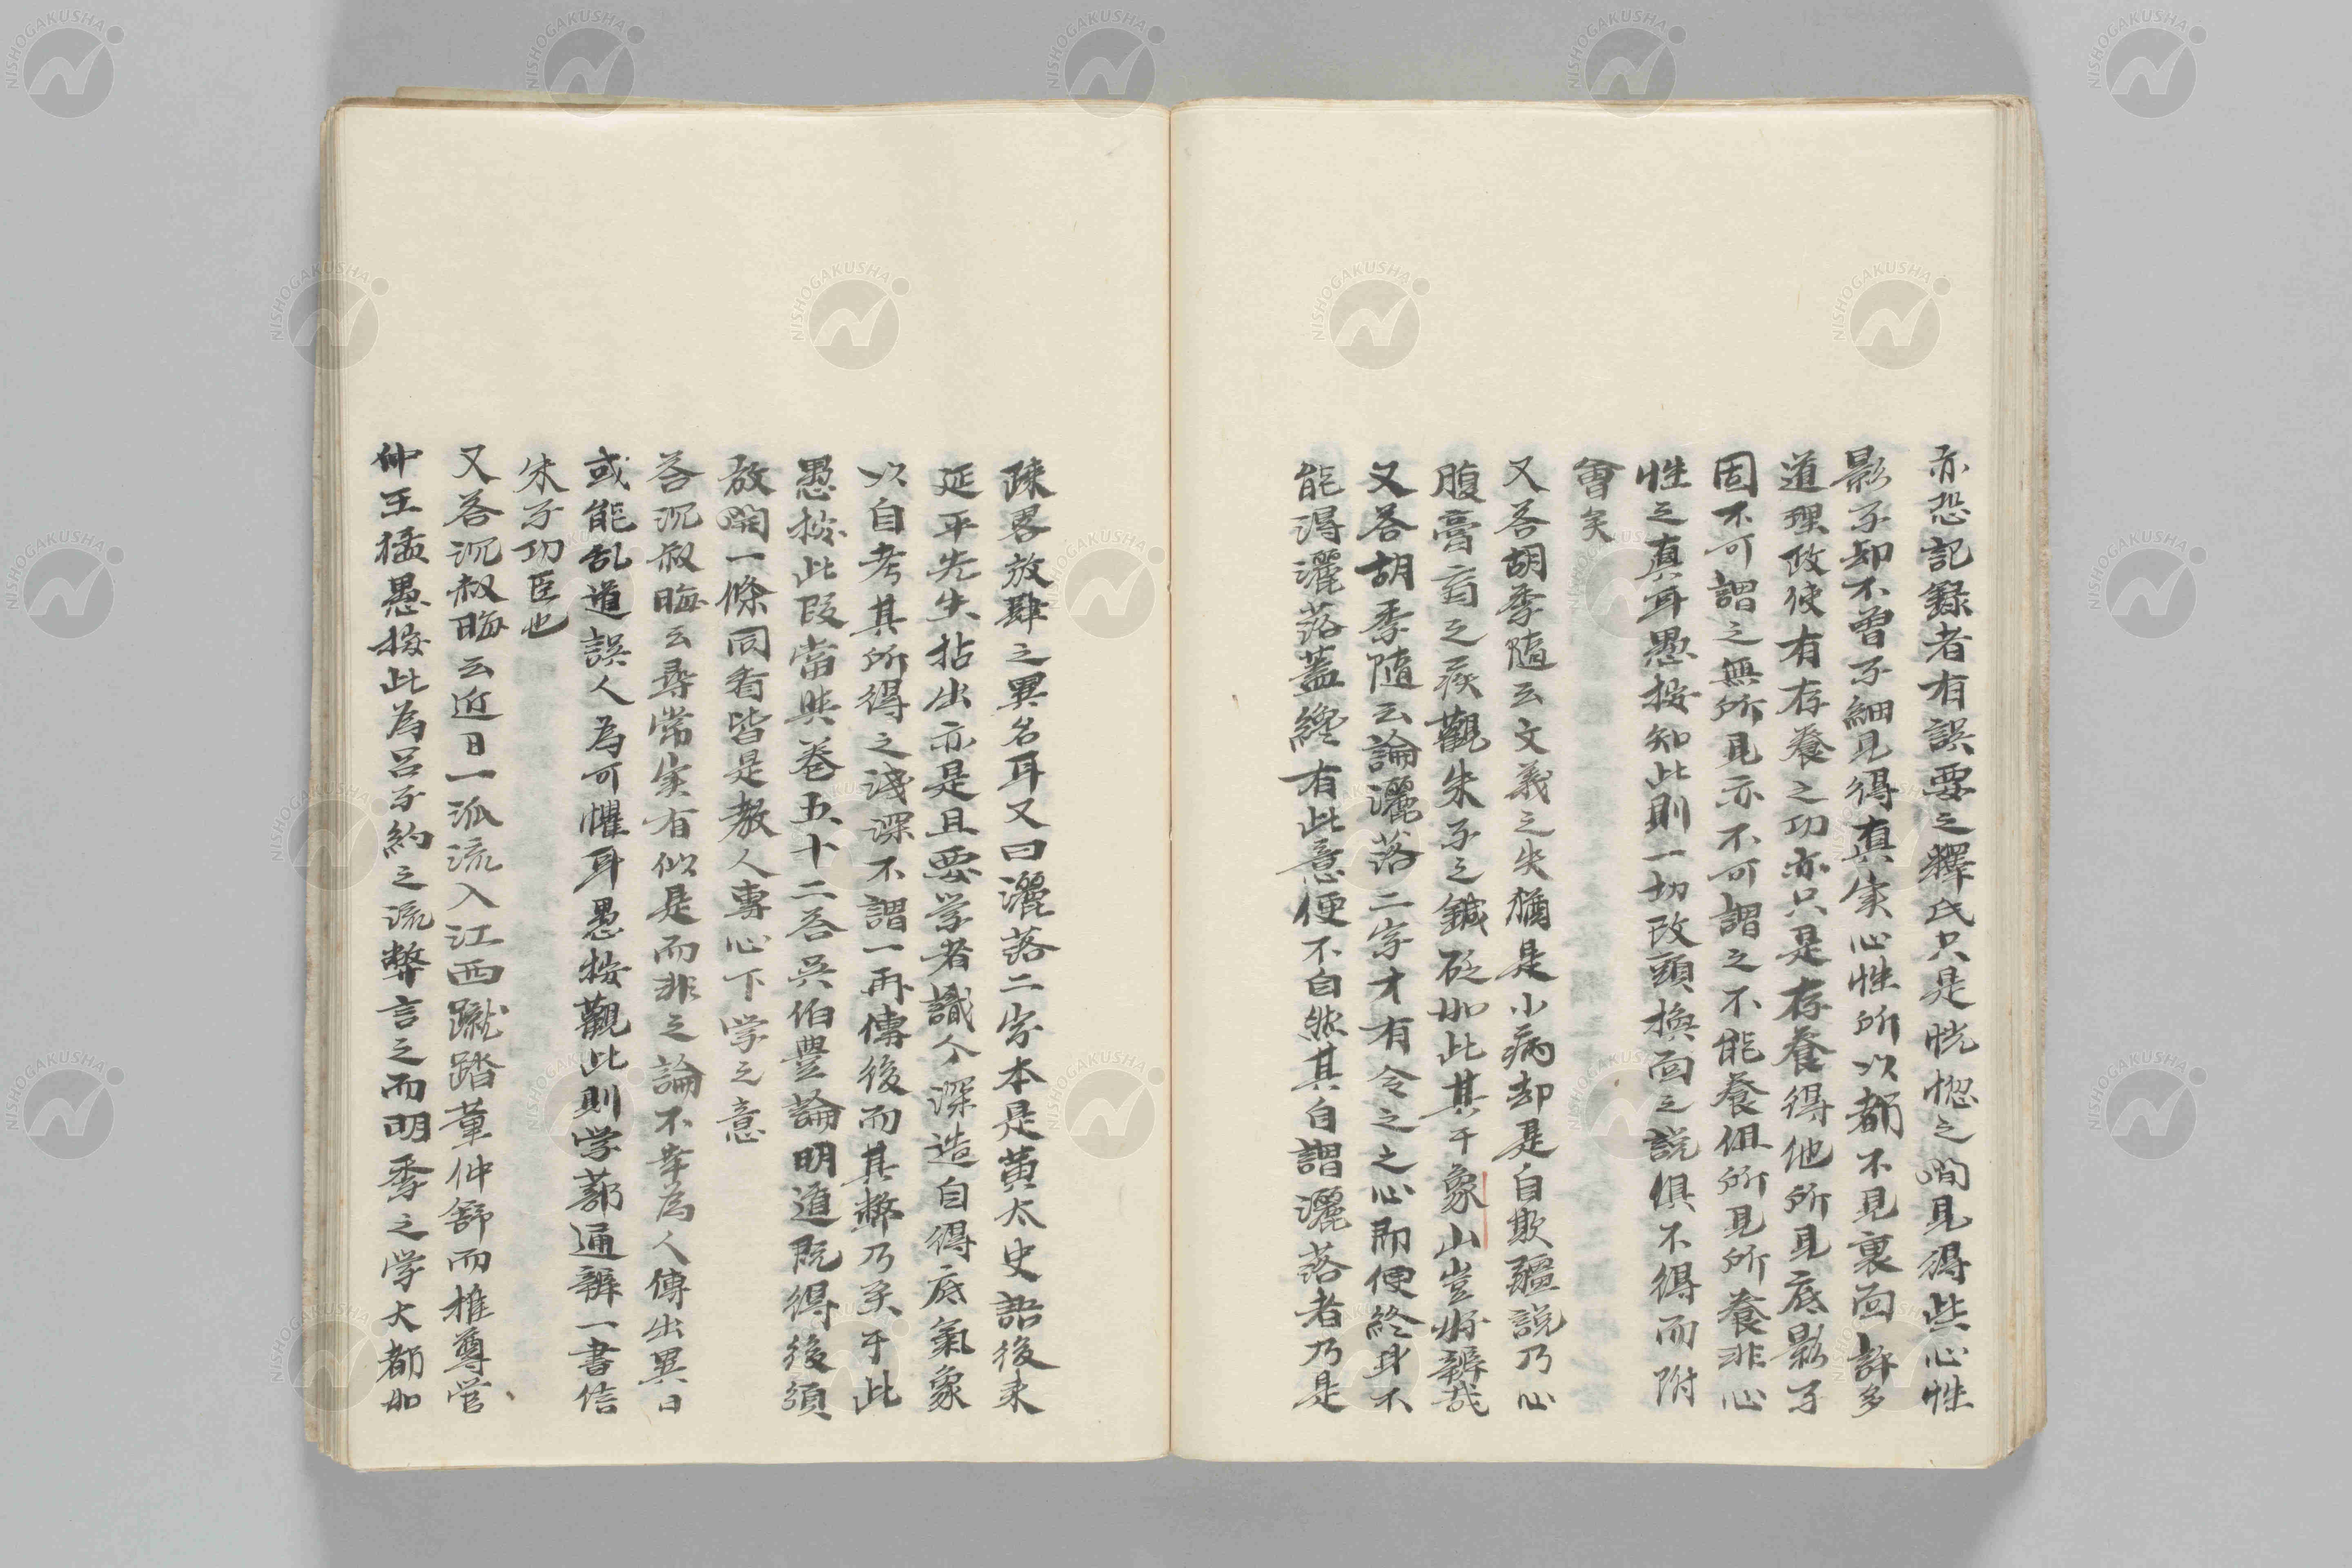 亦恐記録者有誤要之釋氏只是恍惚之間見得些心性
影子却不曾子細見得真実心性所以都不見裏面許多
道理政使有存養之功亦只是存養得他所見底影子
固不可謂之無所見亦不可謂之不能養但所見所養非心
性之真耳愚按知此則一切改頭換面之説俱不得而附
會矣
又答胡季随云文義之失猶是小病却是自欺彊説乃心
腹膏肓之疾觀朱子之鍼砭如此其于象山豈好辨哉
又答胡季随云論灑落二字才有令之之心即便終身不
能得灑落蓋纔有此意便不自然其自謂灑落者乃是
疎畧放肆之異名耳又曰灑落二字本是黄太史語後来
延平先生拈出亦是且要学者識个深造自得底氣象
以自考其所得之淺深不謂一再傳後而其弊乃至于此
愚按此段當與巻五十二答呉伯豊論明道既得後須
放開一條同看皆是教人專心下学之意
答沉叔晦云尋常実有似是而非之論不幸為人傳出異日
或能乱道誤人為可懼耳愚按觀此則学蔀通辨一書信
朱子功臣也
又答沉叔晦云近日一派流入江西蹴踏董仲舒而推尊管
仲王猛愚按此為呂子約之流弊言之而明季之学大都如
NISHOGAKUSHA